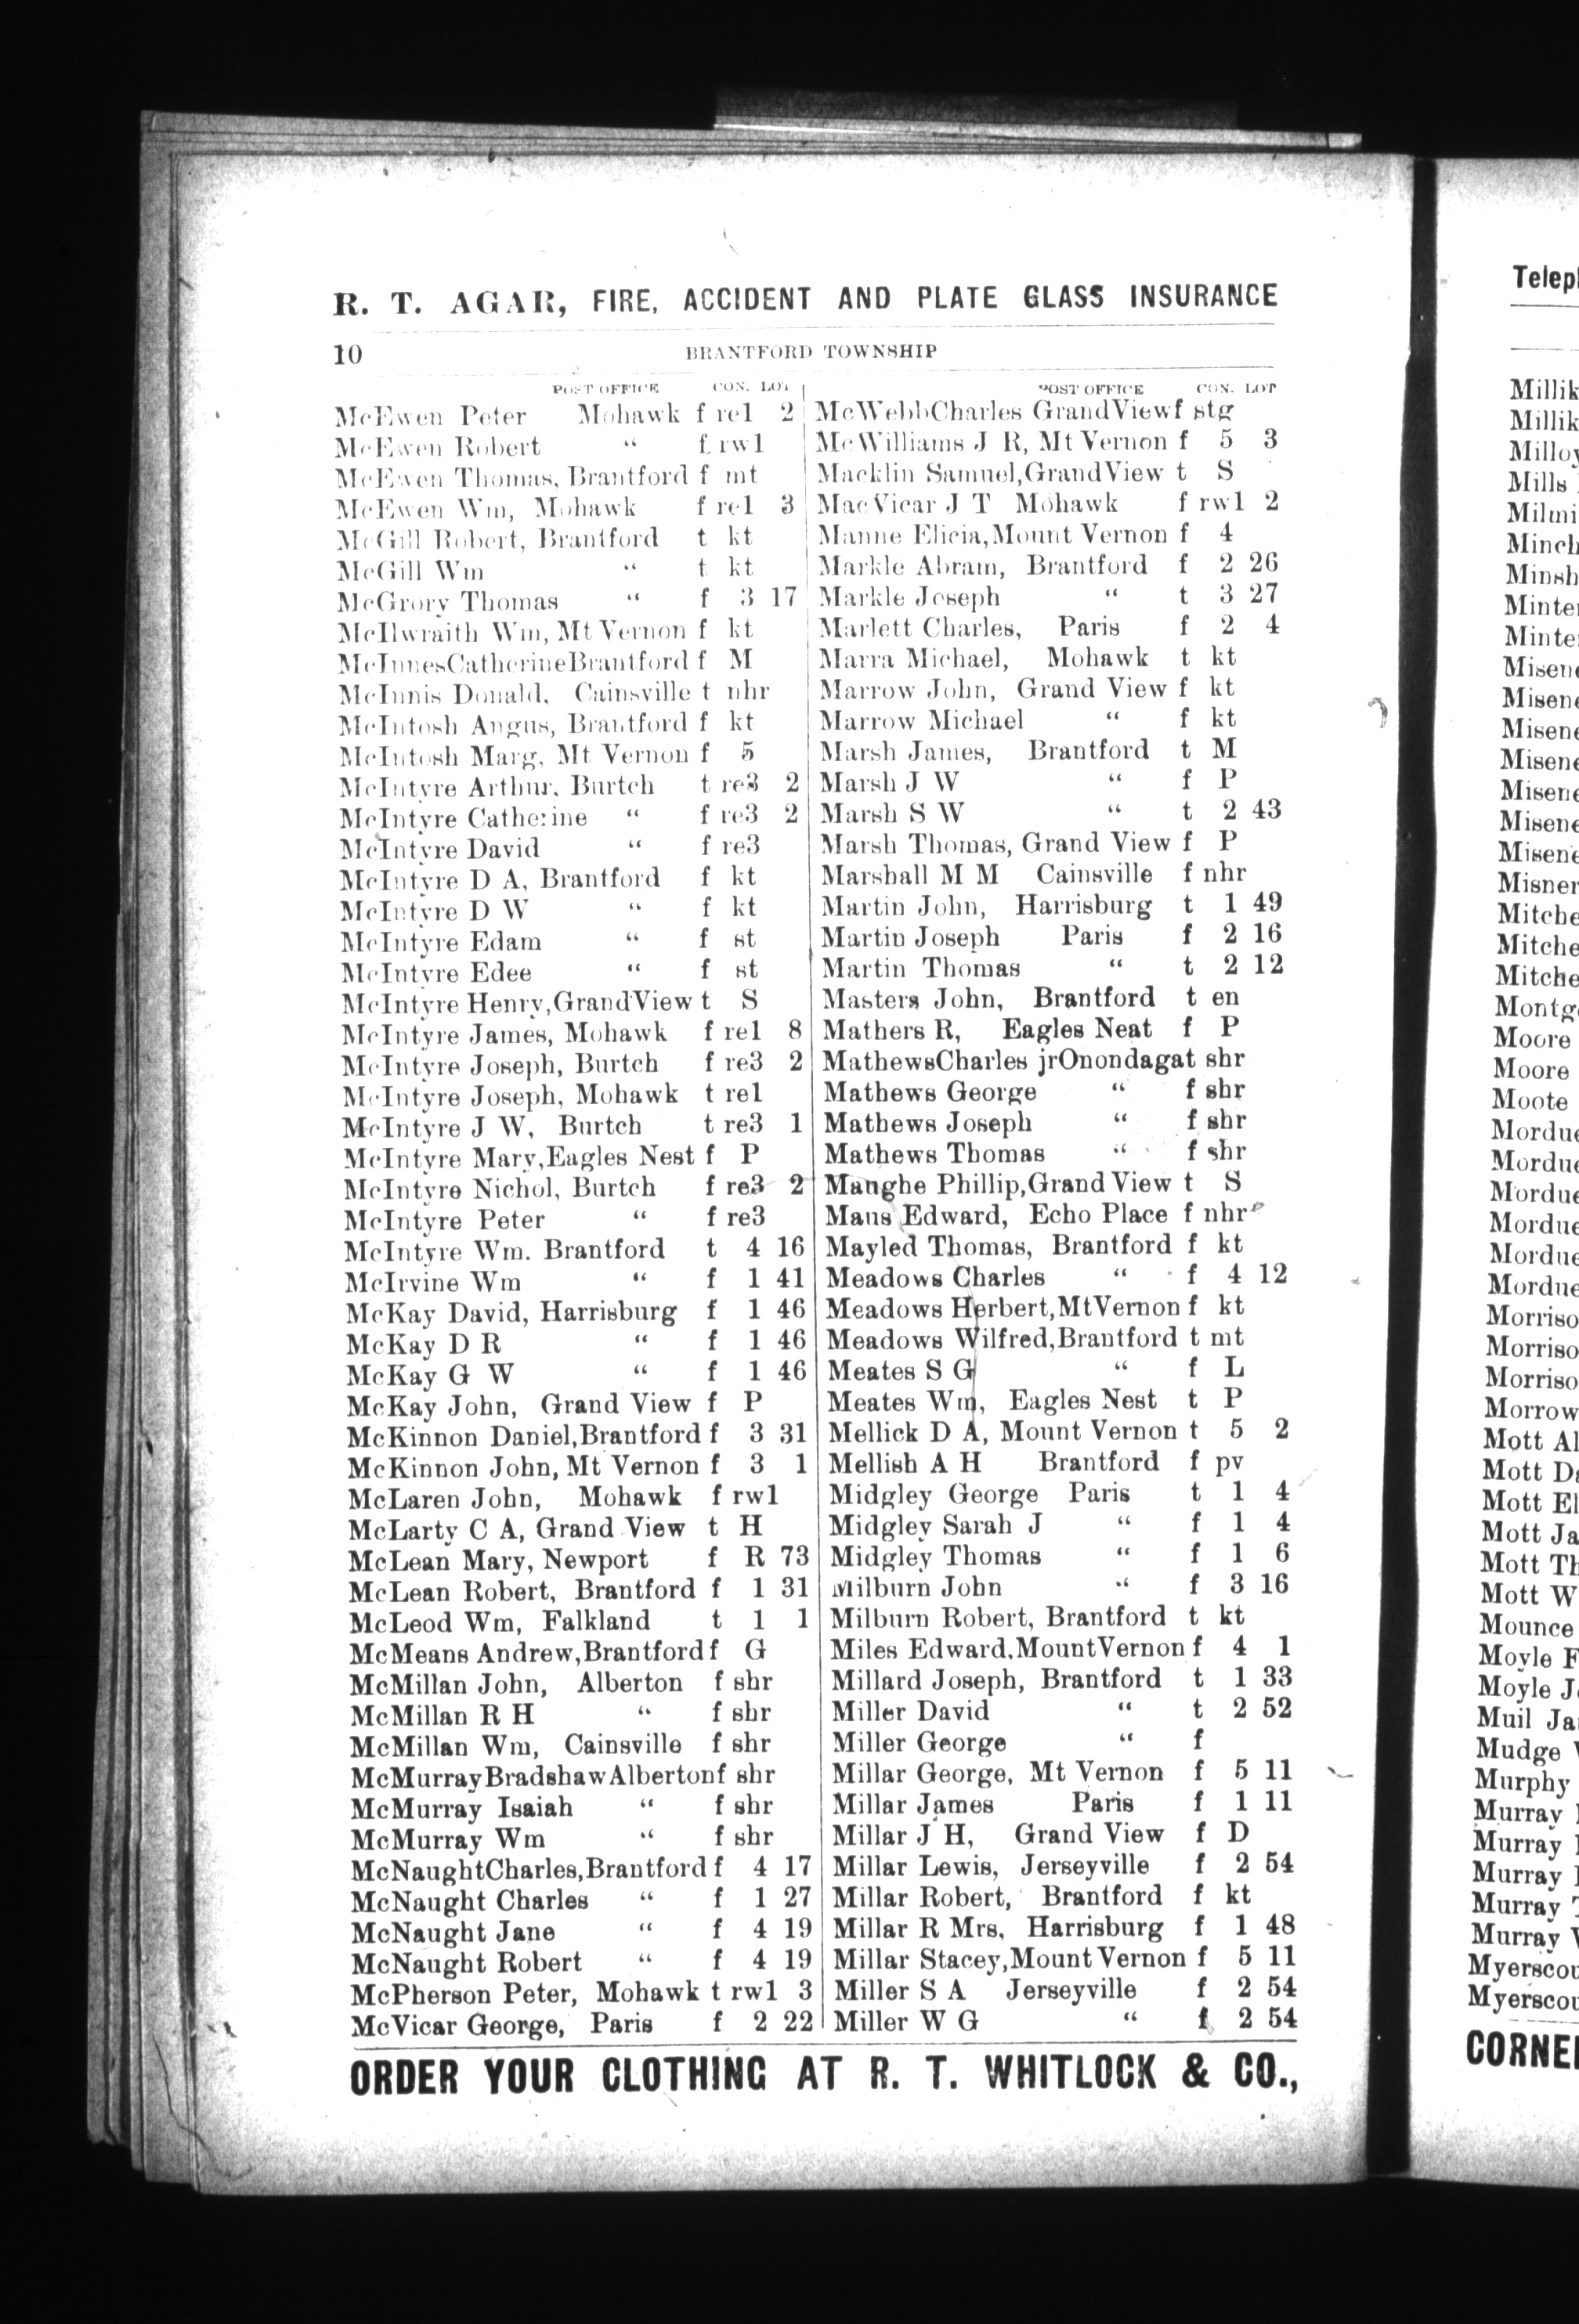 R. T. AGAR, FIRE, ACCIDENT AND PLATE GLASS INSURANCE
10 BRANTFORD TOWNSHIP
POST OFFICE CON. LOT
McEwen Peter Mohawk f re1 2
McEwen Robert “ f rw1
McEwen Thomas, Brantford f mt
McEwen Wm, Mohawk f re1 3
McGill Robert, Brantford t kt
McGill Wm “ t kt
McGrory Thomas “ f 3 17
McIlwraith Wm, Mt Vernon f kt
McInnesCatherineBrantford f M
McInnis Donald, Cainsville t nhr
McIntosh Angus, Brantford f kt
McIntosh Marg, Mt Vernon f 5
McIntyre Arthur, Burtch t re3 2
McIntyre Catherine “ f re3 2
McIntyre David “ f re3
McIntyre D A, Brantford f kt
McIntyre D W “ f kt
McIntyre Edam “ f st
McIntyre Edee “ f st
McIntyre Henry,GrandView t S
McIntyre James, Mohawk f re1 8
McIntyre Joseph, Burtch f re3 2
McIntyre Joseph, Mohawk t re1
McIntyre J W, Burtch t re3 1
McIntyre Mary,Eagles Nest f P
McIntyre Nichol, Burtch f re3 2
McIntyre Peter “ f re3
McIntyre Wm. Brantford t 4 16
McIrvine Wm “ f 1 41
McKay David, Harrisburg f 1 46
McKay D R “ f 1 46
McKay G W “ f 1 46
McKay John, Grand View f P
McKinnon Daniel,Brantford f 3 31
McKinnon John, Mt Vernon f 3 1
McLaren John, Mohawk f rw1
McLarty C A, Grand View t H
McLean Mary, Newport f R 73
McLean Robert, Brantford f 1 31
McLeod Wm, Falkland t 1 1
McMeans Andrew,Brantford f G
McMillan John, Alberton f shr
McMillan R H “ f shr
McMillan Wm, Cainsville f shr
McMurrayBradshawAlbertonf shr
McMurray Isaiah “ f shr
McMurray Wm “ f shr
McNaughtCharles,Brantford f 4 17
McNaught Charles “ f 1 27
McNaught Jane “ f 4 19
McNaught Robert “ f 4 19
McPherson Peter, Mohawk t rw1 3
McVicar George, Paris f 2 22
POST OFFICE CON. LOT
McWebbCharles GrandViewf stg
McWilliams J R, Mt Vernon f 5 3
Macklin Samuel,GrandView t S
MacVicar J T Mohawk f rw1 2
Manne Elicia,Mount Vernon f 4
Markle Abram, Brantford f 2 26
Markle Joseph “ t 3 27
Marlett Charles, Paris f 2 4
Marra Michael, Mohawk t kt
Marrow John, Grand View f kt
Marrow Michael “ f kt
Marsh James, Brantford t M
Marsh J W “ f P
Marsh S W “ t 2 43
Marsh Thomas, Grand View f P
Marshall M M Cainsville f nhr
Martin John, Harrisburg t 1 49
Martin Joseph Paris f 2 16
Martin Thomas “ t 2 12
Masters John, Brantford t en
Mathers R, Eagles Neat f P
MathewsCharles jrOnondagat shr
Mathews George “ f shr
Mathews Joseph “ f shr
Mathews Thomas “ f shr
Maughe Phillip,Grand View t S
Maus Edward, Echo Place f nhr
Mayled Thomas, Brantford f kt
Meadows Charles “ f 4 12
Meadows Herbert,MtVernon f kt
Meadows Wilfred,Brantford t mt
Meates S G “ f L
Meates Wm, Eagles Nest t P
Mellick D A, Mount Vernon t 5 2
Mellish A H Brantford f pv
Midgley George Paris t 1 4
Midgley Sarah J “ f 1 4
Midgley Thomas “ f 1 6
Milburn John “ f 3 16
Milburn Robert, Brantford t kt
Miles Edward,MountVernon f 4 1
Millard Joseph, Brantford t 1 33
Miller David “ t 2 52
Miller George “ f
Millar George, Mt Vernon f 5 11
Millar James Paris f 1 11
Millar J H, Grand View f D
Millar Lewis, Jerseyville f 2 54
Millar Robert, Brantford f kt
Millar R Mrs, Harrisburg f 1 48
Millar Stacey,Mount Vernon f 5 11
Miller S A Jerseyville f 2 54
Miller W G “ f 2 54
ORDER YOUR CLOTHING AT R. T. WHITLOCK & CO.,
Moore
Moore
Moote
Morrow
Mott Al
Mott
Mott El
Mott Ja
Mott Th
Mott W
Mounce
Moyle F
Moyle
Muil Ja
Mudge
Murphy
Murray
Murray
Murray
Murray
Murray